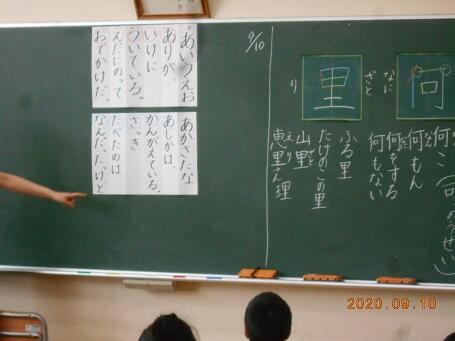 何
なに
何こ
何もん
何をする
何もない
里
ざと
り
ふる里
たけのこの里
山里
9/10
あいうえお
ありが
いけに
ういている。
えだにのって
おでかけだ。
あかさたな
あしかは、
かんがえている。
さっき
たべたのは
なんだったけと
2020.09.10